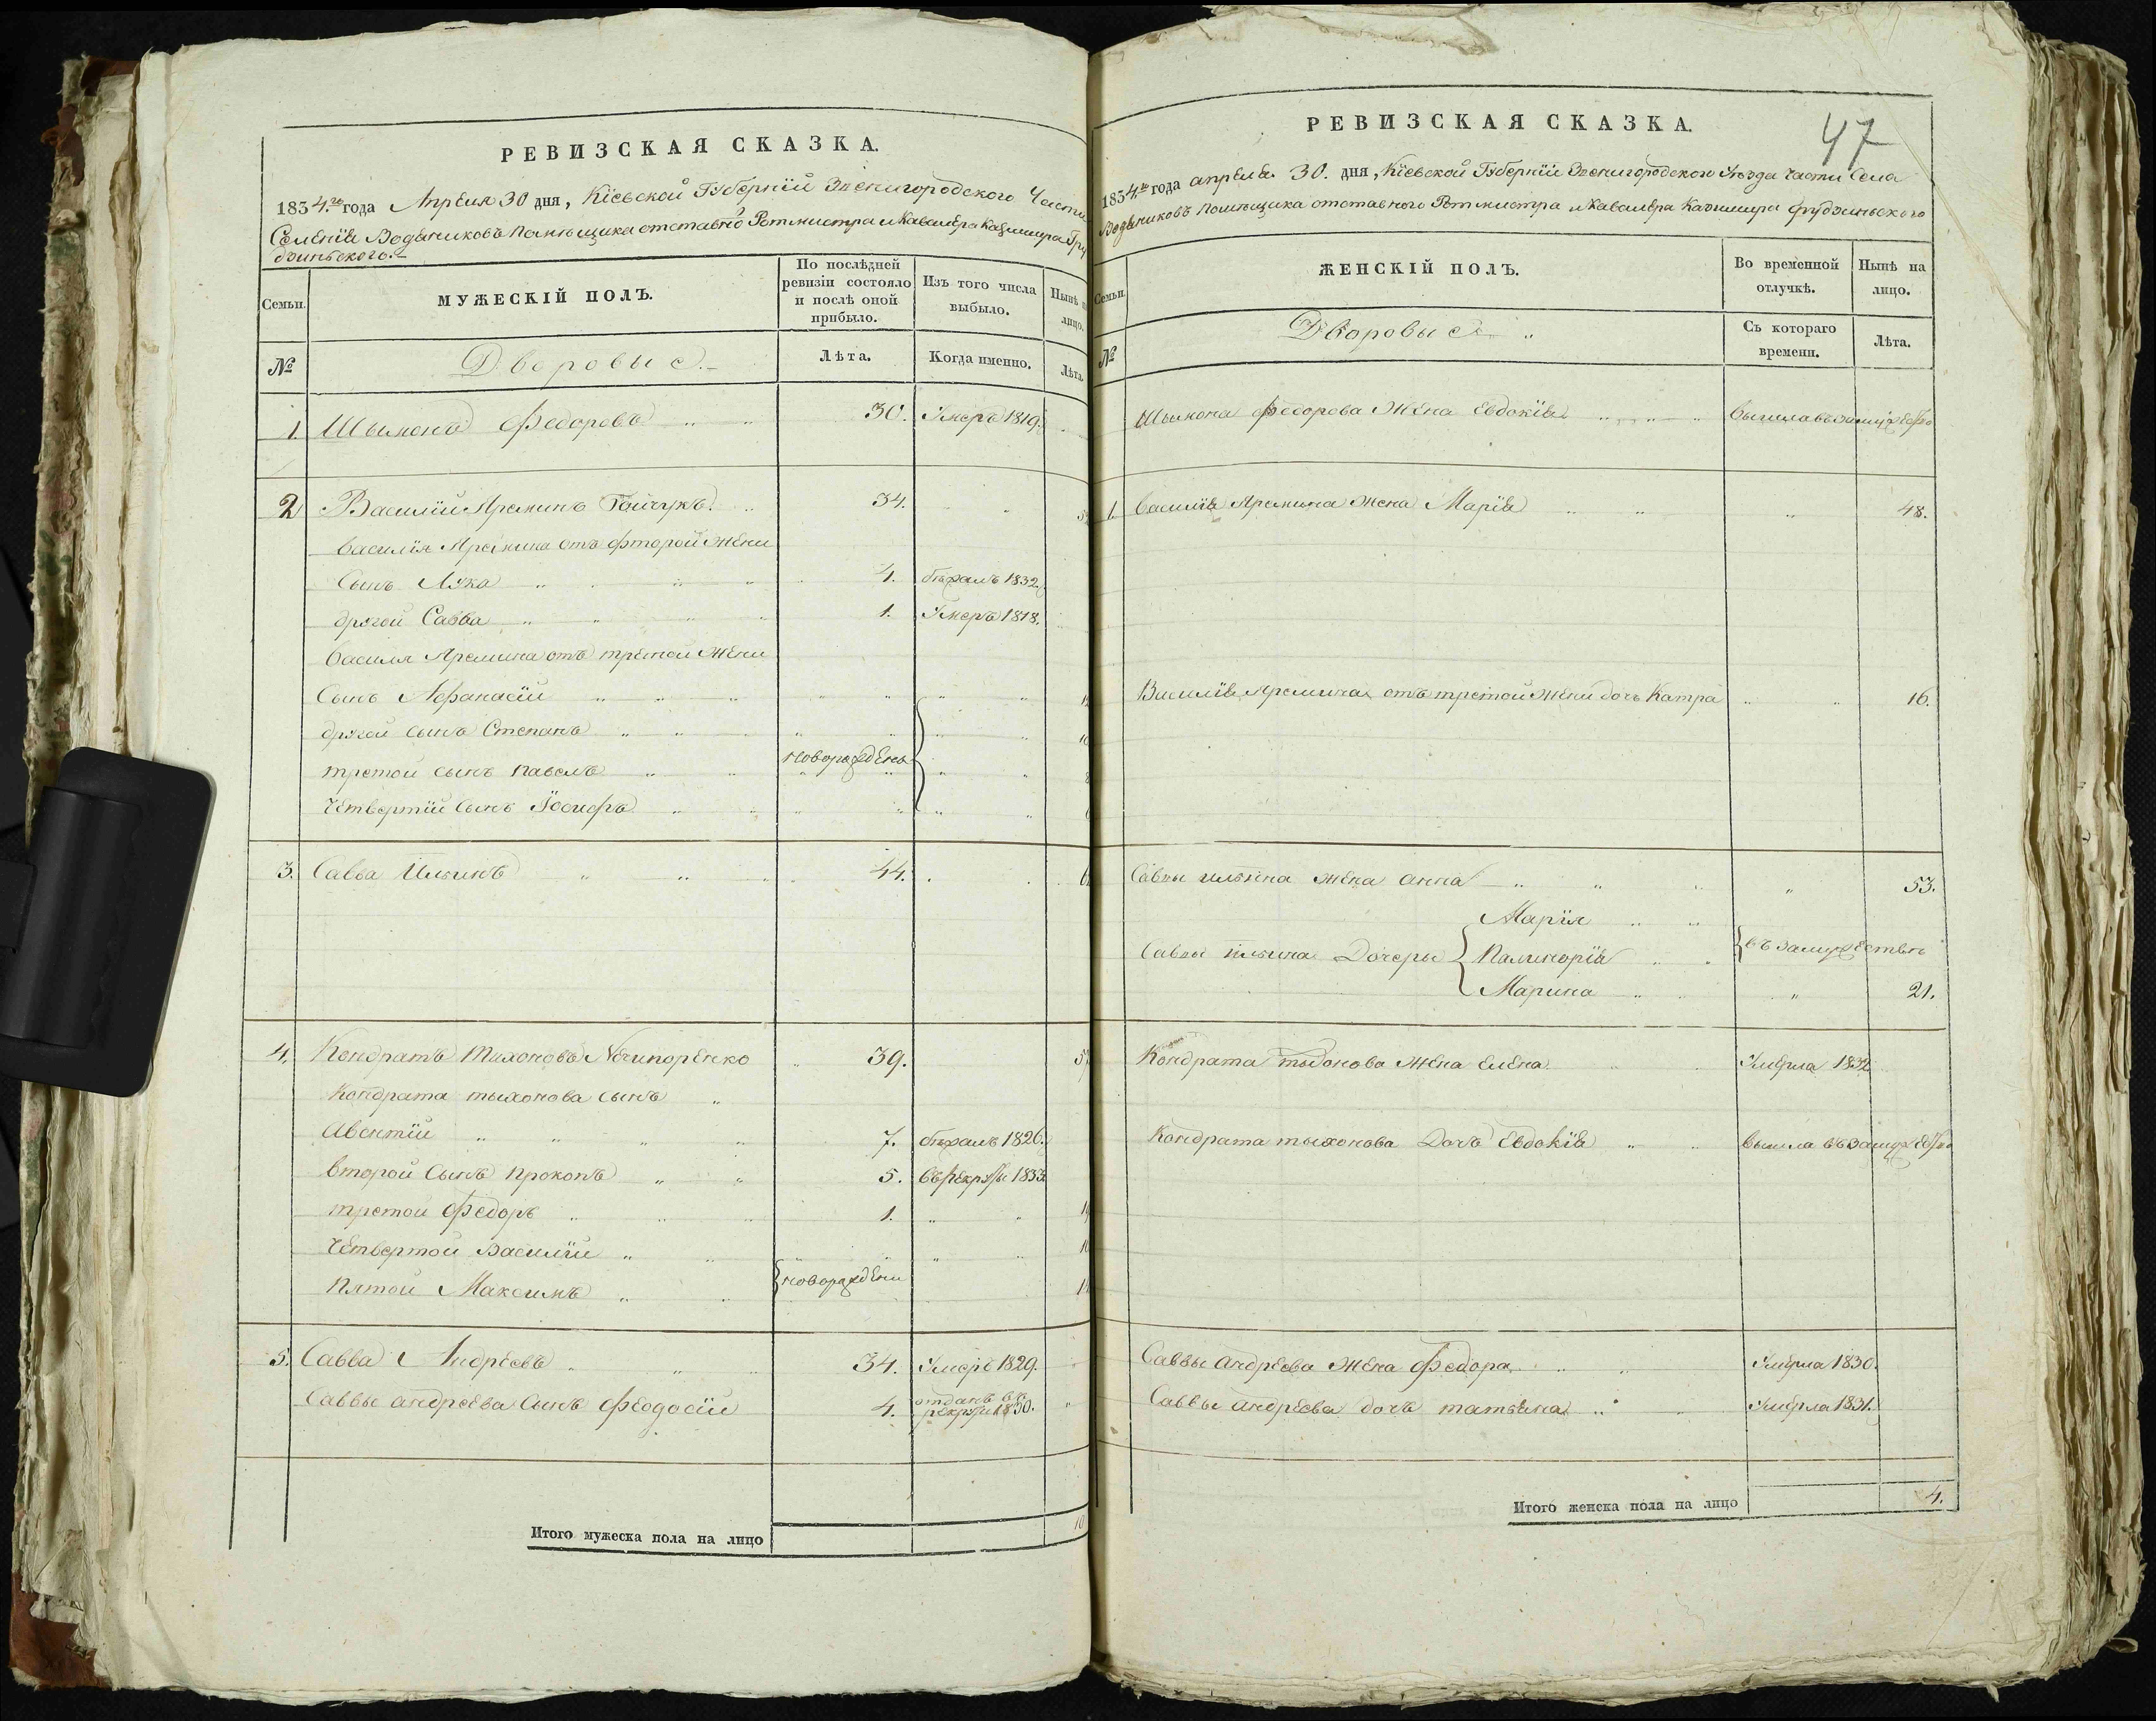 РЕВИЗСКАЯ СКАЗКА.
1834.го года Апреля 30 дня, Кіевской Губерніи Звенигородского Части
Селенія Водяниковъ Помѣщика отставнго Ротмистра и Кавалера Казимира Гру
дзиньского.
Семьи.
МУЖЕСКІЙ ПОЛЪ.
По послѣдней ревизіи состояло и послѣ оной прибыло.
Изъ того числа выбыло.
Нынѣ
лицо.
№
Дворовые
Лѣта.
Когда именно.
Лѣта
1. Шымонъ Федоровъ 30. Умеръ 1819.
2 Василій Яреминъ Гайчукъ 34.
Василія Яремина отъ фторой Жени
Сынъ Лука 4. бѣжалъ 1832.
другой Савва 1. Умеръ 1818.
Василя Яремина отъ третой Жени
Сынъ Афанасій
другой сынъ Степанъ
третой сынъ павелъ новорожденъ
Четвертій Сынъ Іосифъ
3. Савва Ильинъ 44.
4. Кондратъ Тихоновъ Нечипоренко 39.
Кондрата тыхонова сынъ
Авентій 7. бѣжалъ 1826.
второй Сынъ прокопъ 5. въ Рекруты 1833
третой Федоръ 1.
Четвертой Василій
пятой Максимъ новорождени
5. Савва Андрѣевъ 34. Умеръ 1829.
Саввы андреева Сынъ Феодосій 4. отданъ въ рекруты 1830.
Итого мужеска пола на лицо 10
РЕВИЗСКАЯ СКАЗКА.
47
1834.го года апреля 30. дня, Кіевской Губерніи Звенигородского Уѣзда части Села
Водяниковъ помѣщика отставного Ротмистра и Кавалера Казимира Грудзиньского
Семьи.
ЖЕНСКІЙ ПОЛЪ.
Во временной отлучкѣ.
Нынѣ на лицо.
№
Дворовые
Съ котораго времени.
Лѣта.
Шымона Федорова Жена Евдокія вышла въ замужество
1. Василія Яремина жена Марія 48.
Василія Яремина отъ третой Жени дочь Катра 16.
Саввы ильина жена анна 53.
Марія
Саввы ильина Дочеры Палинарія въ замужествѣ
Марина 21.
Кондрата тыхонова Жена Елена Умерла 1832
Кондрата тыхонова Дочъ Евдокія вышла въ замужество
Саввы андреева Жена Федора Умерла 1830.
Саввы андреева дочъ татіяна Умерла 1831.
Итого женска пола на лицо 4.